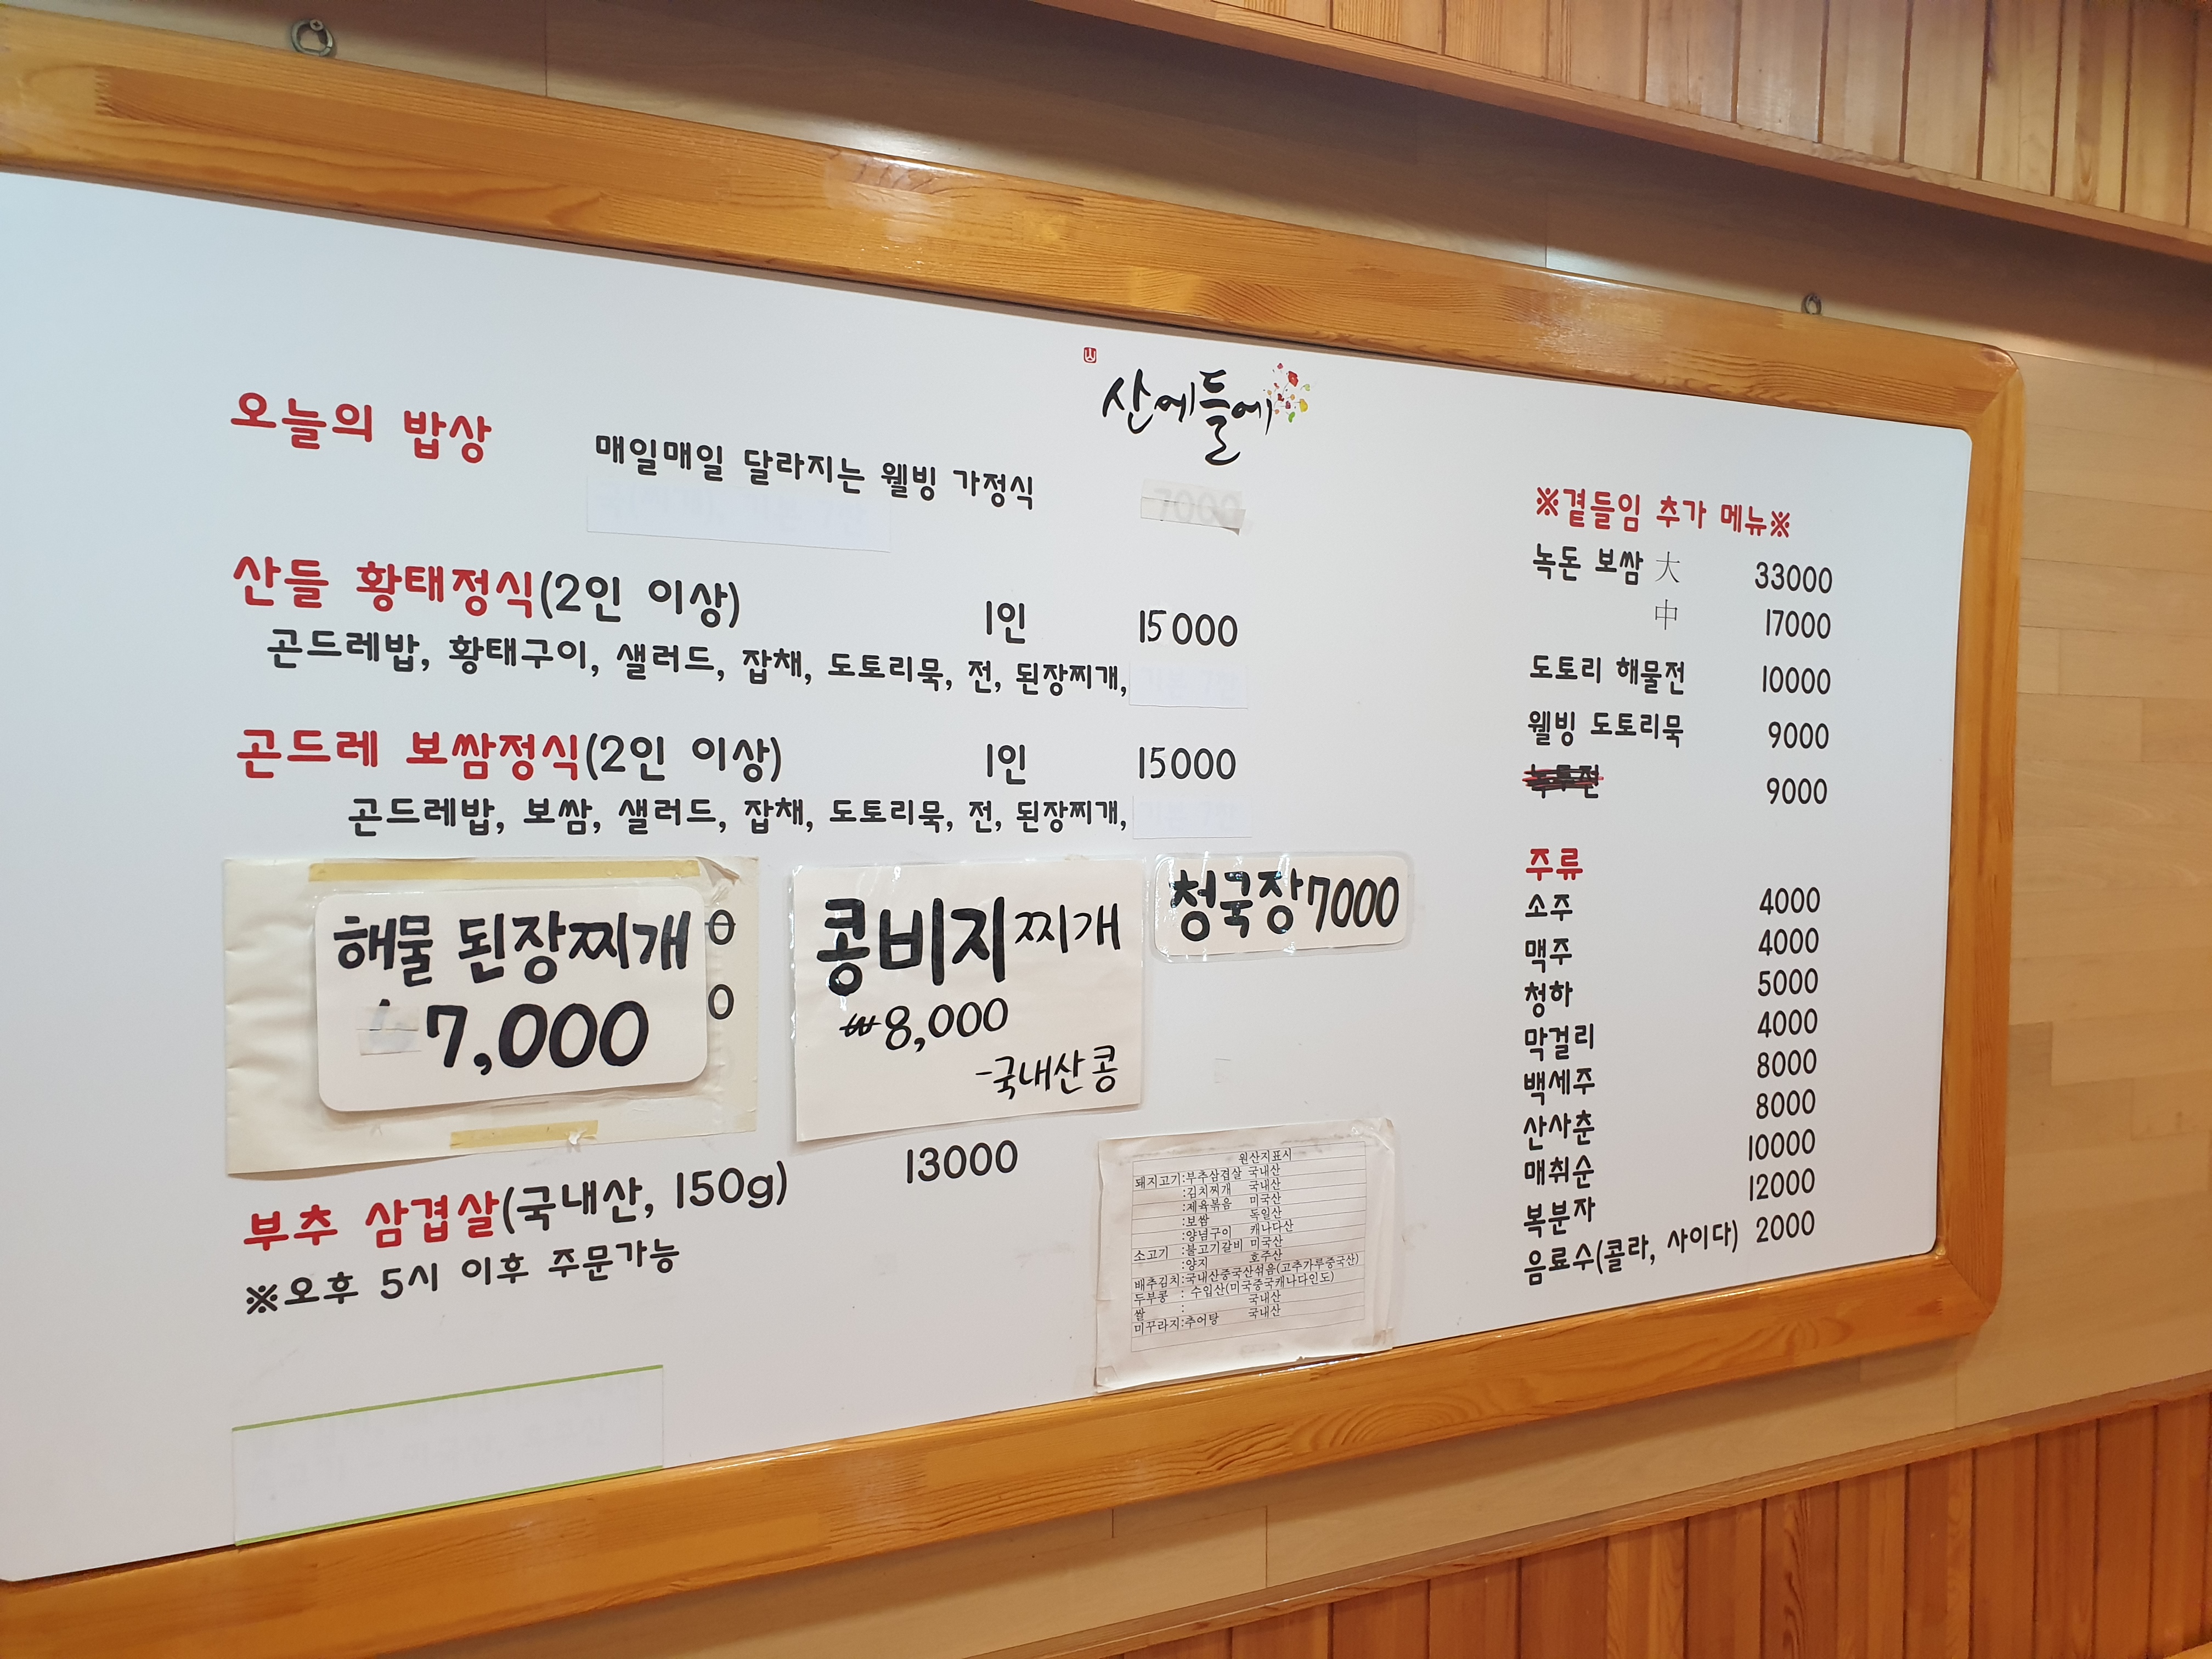 산에들에
오늘의 밥상
매일매일 달라지는 웰빙 가정식
7000
산들 황태정식(2인 이상) 1인 15000
곤드레밥, 황태구이, 샐러드, 잡채, 도토리묵, 전, 된장찌개,
곤드레 보쌈정식(2인 이상) 1인 15000
곤드레밥, 보쌈, 샐러드, 잡채, 도토리묵, 전, 된장찌개,
해물 된장찌개
7,000
0
0
콩비지찌개
₩8,000
-국내산콩
청국장7000
부추 삼겹살(국내산, 150g) 13000
※오후 5시 이후 주문가능
원산지표시
돼지고기:부추삼겹살 국내산
:김치찌개 국내산
:제육볶음 미국산
:보쌈 독일산
:양념구이 캐나다산
소고기 :불고기갈비 미국산
:양지 호주산
배추김치:국내산중국산섞음(고추가루중국산)
두부콩 : 수입산(미국중국캐나다인도)
쌀 : 국내산
미꾸라지:추어탕 국내산
※곁들임 추가 메뉴※
녹돈 보쌈 大 33000
中 17000
도토리 해물전 10000
웰빙 도토리묵 9000
녹두전 9000
주류
소주 4000
맥주 4000
청하 5000
막걸리 4000
백세주 8000
산사춘 8000
매취순 10000
복분자 12000
음료수(콜라, 사이다) 2000